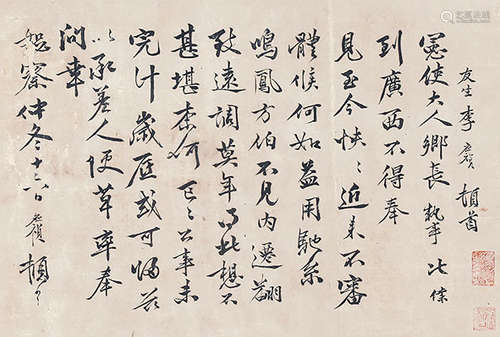 友生李 頓首
憲使大人鄉長執事比候
到廣西不得奉
見至今怏〻近來不審
體候何如益用馳系
鳴鳳方伯不見内遷翻
致遠調莫年得此想不
甚堪柰何〻〻公事未
完計歲底或可歸茲
以承差人便草率奉
問幸
恕察仲冬十六日 頓首